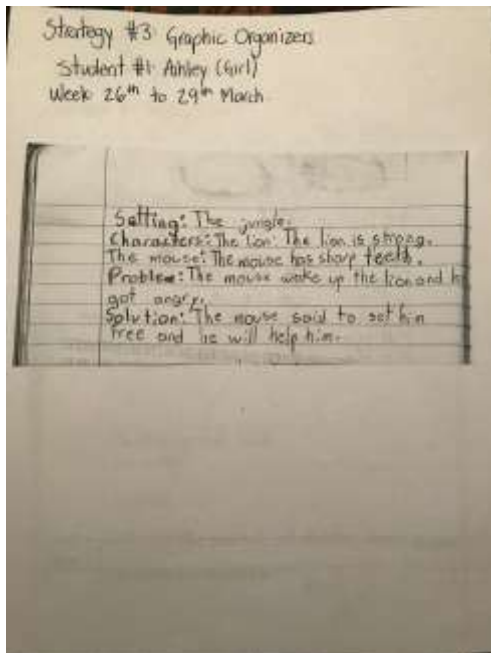 Strategy #3 Graphic Organizers
Student #1 Ashley (Girl)
Week 26th to 29th March
Setting: The jungle.
Characters: The lion: The lion is strong.
The mouse: The mouse has sharp teeth.
Problem: The mouse woke up the lion and he
got angry.
Solution: The mouse said to set him
free and he will help him.